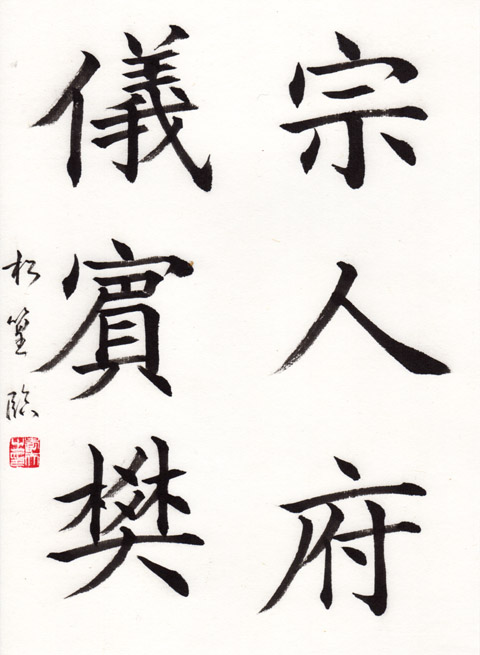 宗人府
儀賓樊
松篁臨